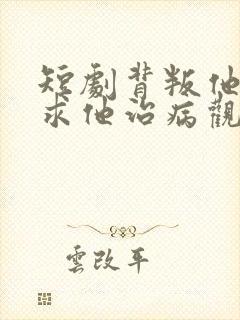 短劇背叛他
求他治病觀
雲改平